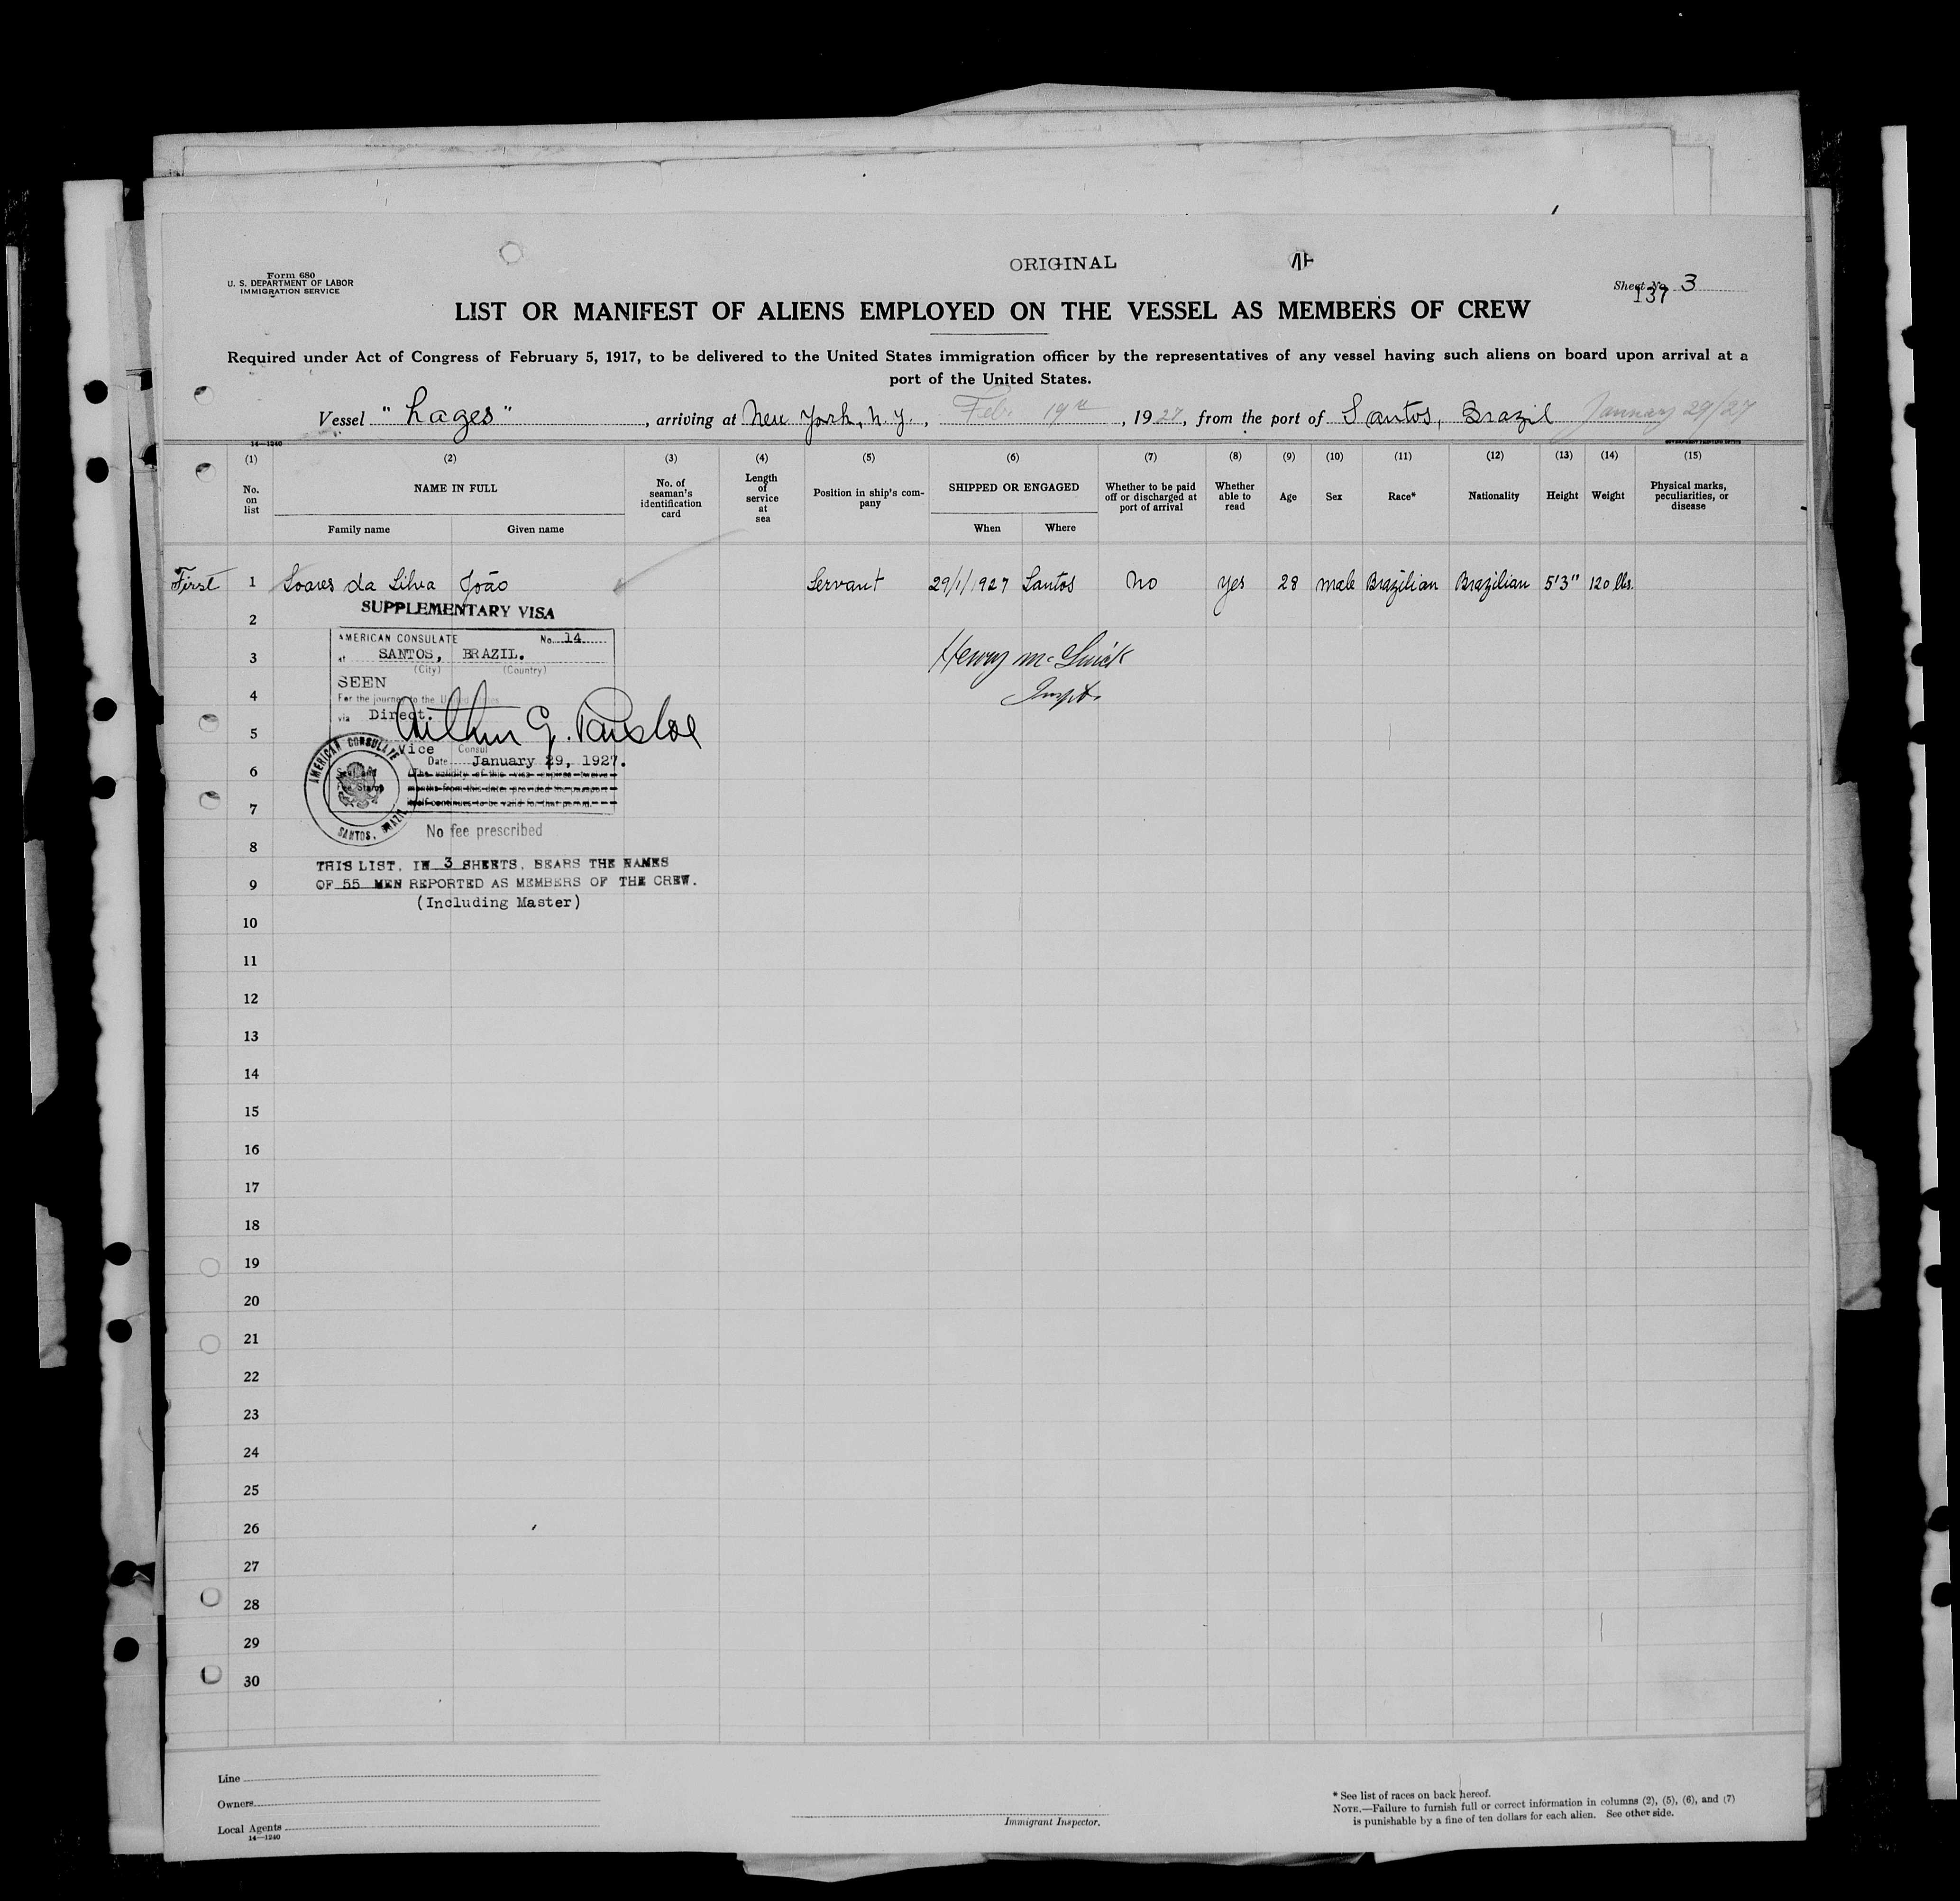 ORIGINAL
Form 680
U. S. DEPARTMENT OF LABOR
IMMIGRATION SERVICE
Sheet No. 3
137
LIST OR MANIFEST OF ALIENS EMPLOYED ON THE VESSEL AS MEMBERS OF CREW
Required under Act of Congress of February 5, 1917, to be delivered to the United States immigration officer by the representatives of any vessel having such aliens on board upon arrival at a
port of the United States.
Vessel "Lages", arriving at New York, N.Y., Feb. 19th, 1927, from the port of Santos, Brazil January 29/27
14—1240
(1) (2) (3) (4) (5) (6) (7) (8) (9) (10) (11) (12) (13) (14) (15)
No. on list
NAME IN FULL
Family name Given name
No. of seaman's identification card
Length of service at sea
Position in ship's company
SHIPPED OR ENGAGED
When Where
Whether to be paid off or discharged at port of arrival
Whether able to read
Age
Sex
Race*
Nationality
Height
Weight
Physical marks, peculiarities, or disease
First 1 Soares da Silva João Servant 29/1/1927 Santos No Yes 28 male Brazilian Brazilian 5'3" 120 lbs.
SUPPLEMENTARY VISA
2
AMERICAN CONSULATE No. 14
3
at SANTOS, BRAZIL.
(City) (Country)
Henry
SEEN
4
For the journey to the United States
Inspt.
via Direct.
Arthur G.
5
Vice Consul
Date January 29, 1927.
6
The validity of this visa expires twelve
months from this date, provided the passport
itself continues to be valid for that period.
AMERICAN CONSULATE
SANTOS, BRAZIL
Fee Stamp
7
No fee prescribed
8
THIS LIST, IN 3 SHEETS, BEARS THE NAMES
9
OF 55 MEN REPORTED AS MEMBERS OF THE CREW.
(Including Master)
10
11
12
13
14
15
16
17
18
19
20
21
22
23
24
25
26
27
28
29
30
Line
Owners
Local Agents
14—1240
Immigrant Inspector.
* See list of races on back hereof.
NOTE.—Failure to furnish full or correct information in columns (2), (5), (6), and (7)
is punishable by a fine of ten dollars for each alien. See other side.